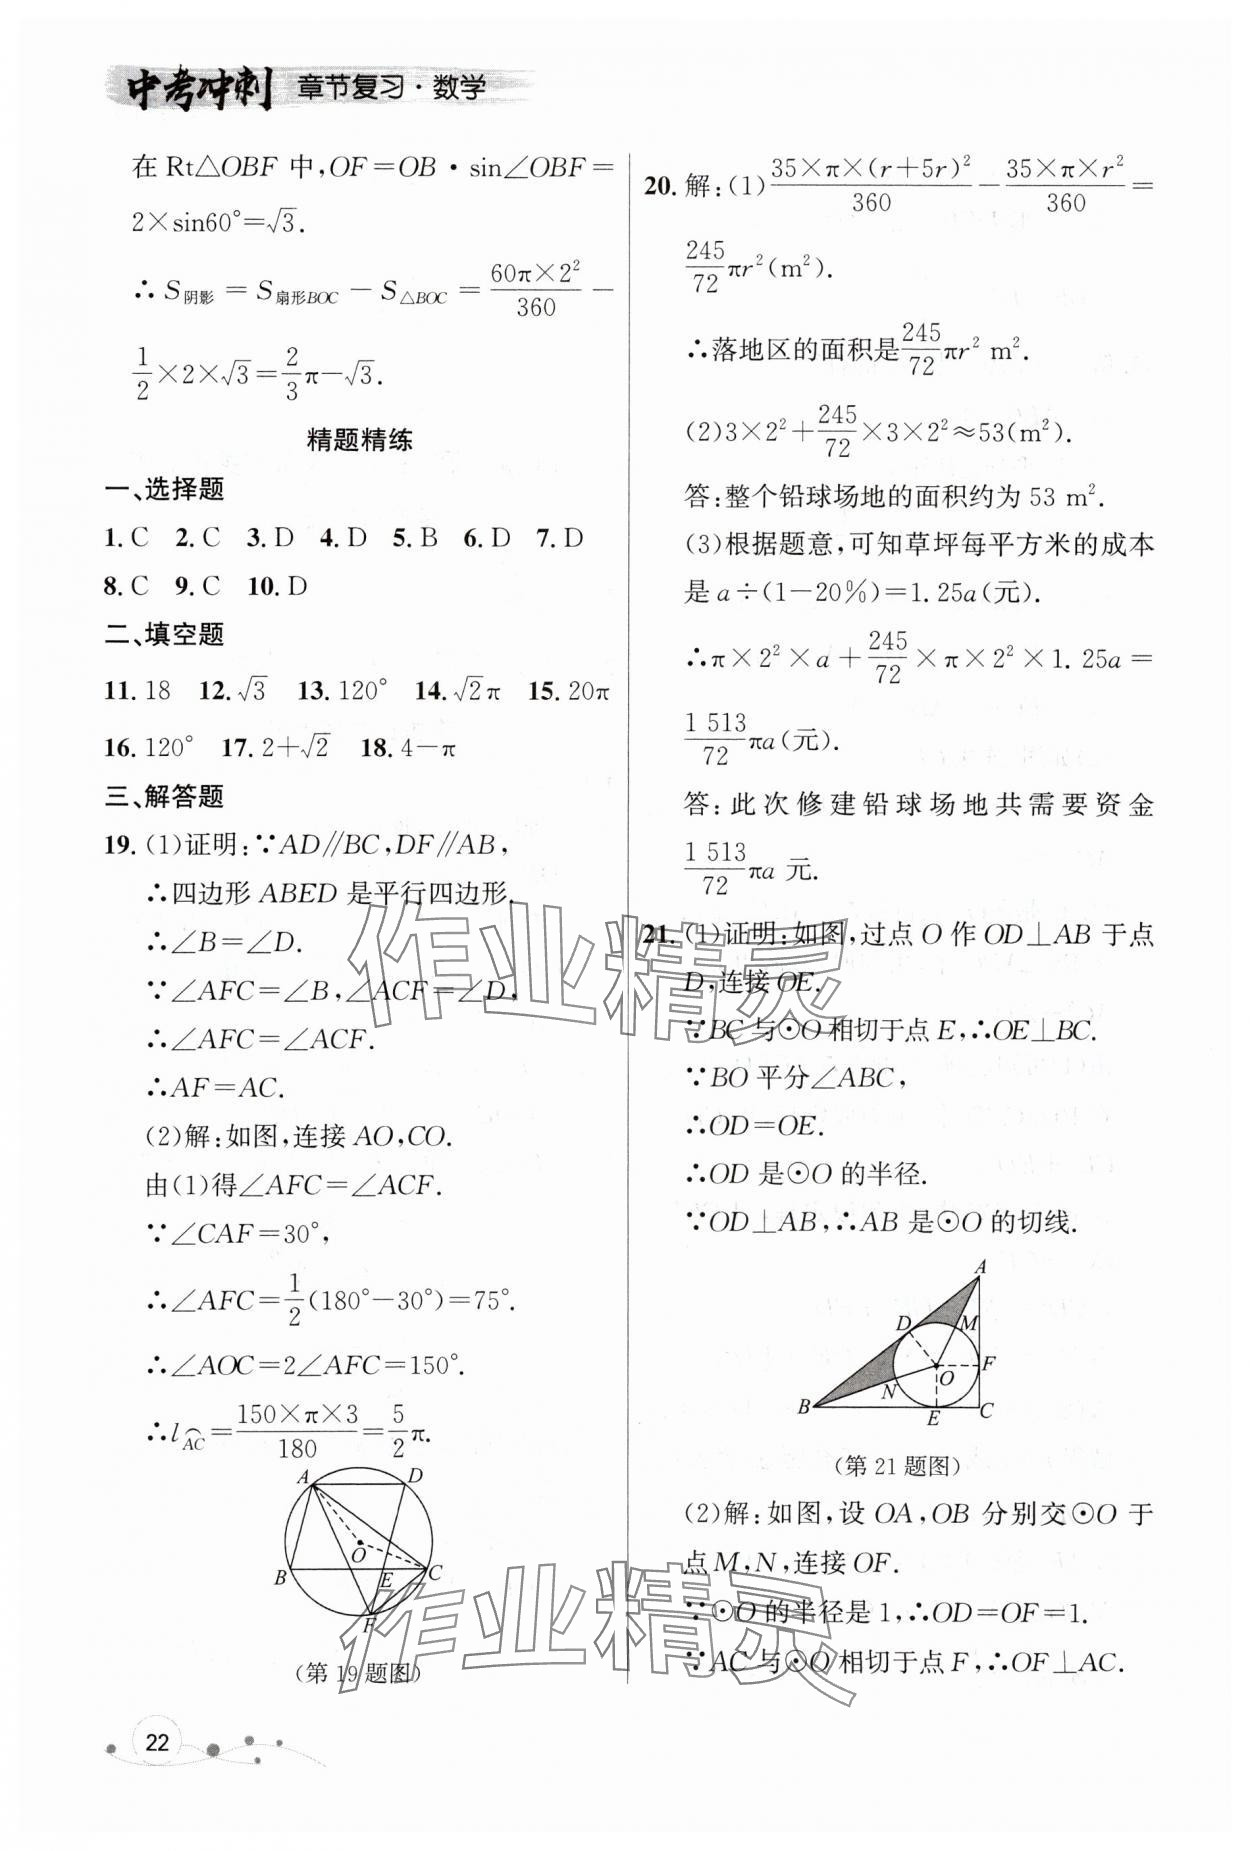 中考冲刺 章节复习·数学
在 Rt△OBF 中,OF=OB·sin∠OBF=
2×sin60°=√3.
∴S阴影=S扇形BOC−S△BOC=60π×2²/360−
1/2×2×√3=2/3π−√3.
精题精练
一、选择题
1.C 2.C 3.D 4.D 5.B 6.D 7.D
8.C 9.C 10.D
二、填空题
11.18 12.√3 13.120° 14.√2π 15.20π
16.120° 17.2+√2 18.4−π
三、解答题
19.(1)证明:∵AD∥BC,DF∥AB,
∴四边形 ABED 是平行四边形.
∴∠B=∠D.
∵∠AFC=∠B,∠ACF=∠D,
∴∠AFC=∠ACF.
∴AF=AC.
(2)解:如图,连接 AO,CO.
由(1)得∠AFC=∠ACF.
∵∠CAF=30°,
∴∠AFC=1/2(180°−30°)=75°.
∴∠AOC=2∠AFC=150°.
∴l⌒AC=150×π×3/180=5/2π.
A D
O
B E C
F
(第 19 题图)
20.解:(1)35×π×(r+5r)²/360−35×π×r²/360=
245/72πr²(m²).
∴落地区的面积是245/72πr² m².
(2)3×2²+245/72×3×2²≈53(m²).
答:整个铅球场地的面积约为 53 m².
(3)根据题意,可知草坪每平方米的成本
是 a÷(1−20%)=1.25a(元).
∴π×2²×a+245/72×π×2²×1.25a=
1 513/72πa(元).
答:此次修建铅球场地共需要资金
1 513/72πa 元.
21.(1)证明:如图,过点 O 作 OD⊥AB 于点
D,连接 OE.
∵BC 与⊙O 相切于点 E,∴OE⊥BC.
∵BO 平分∠ABC,
∴OD=OE.
∴OD 是⊙O 的半径.
∵OD⊥AB,∴AB 是⊙O 的切线.
A
D M
O F
N
B E C
(第 21 题图)
(2)解:如图,设 OA,OB 分别交⊙O 于
点 M,N,连接 OF.
∵⊙O 的半径是 1,∴OD=OF=1.
∵AC 与⊙O 相切于点 F,∴OF⊥AC.
作业精灵
作业精灵
22